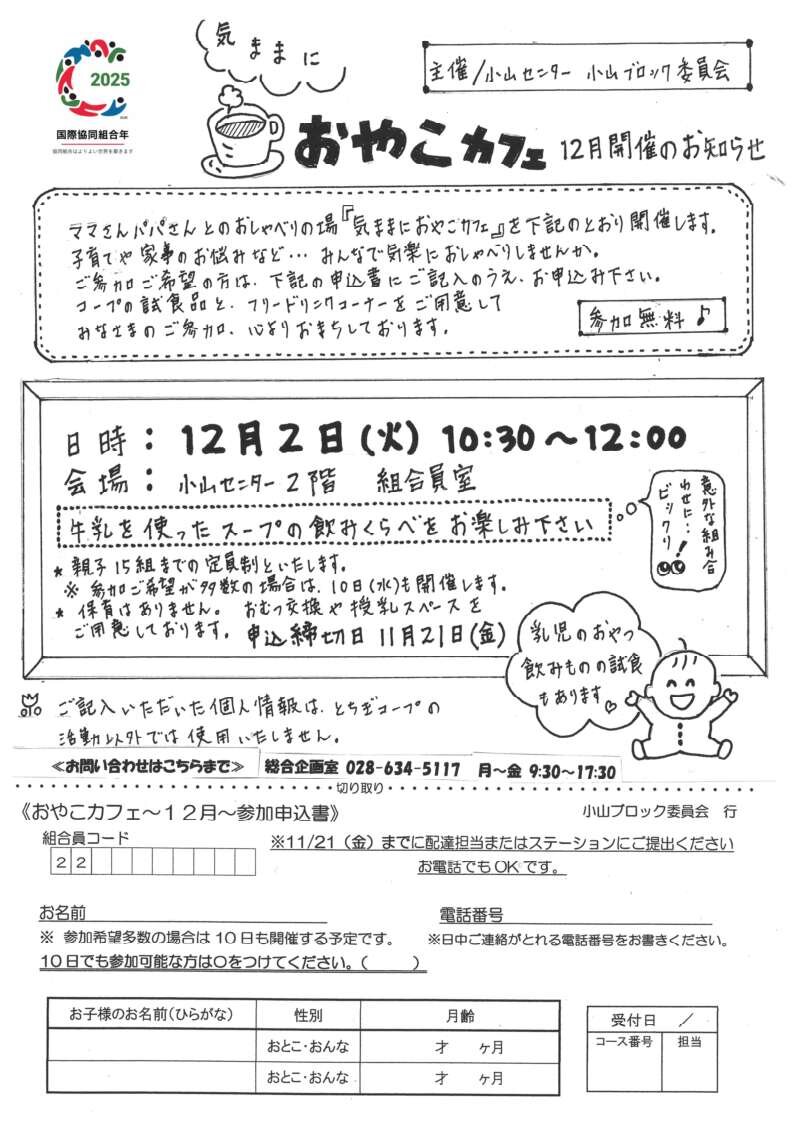 2025
国際協同組合年
協同組合はよりよい世界を築きます
気ままに
主催/小山センター 小山ブロック委員会
おやこカフェ 12月開催のお知らせ
ママさんパパさんとのおしゃべりの場『気ままにおやこカフェ』を下記のとおり開催します。
子育てや家事のお悩みなど… みんなで気楽におしゃべりしませんか。
ご参加ご希望の方は、下記の申込書にご記入のうえ、お申込み下さい。
コープの試食品と、フリードリンクコーナーをご用意して
みなさまのご参加、心よりおまちしております。
参加無料♪
日時: 12月2日(火) 10:30~12:00
会場: 小山センター2階 組合員室
牛乳を使ったスープの飲みくらべをお楽しみ下さい
意外な組み合
わせに‥
ビックリ!
* 親子15組までの定員制といたします。
※ 参加ご希望が多数の場合は、10日(水)も開催します。
* 保育はありません。 おむつ交換や授乳スペースを
ご用意しております。 申込締切日 11月21日(金)
乳児のおやつ
飲みものの試食
もあります♡
ご記入いただいた個人情報は、とちぎコープの
活動以外では使用いたしません。
≪お問い合わせはこちらまで≫ 総合企画室 028-634-5117 月~金 9:30~17:30
切り取り
《おやこカフェ~12月~参加申込書》 小山ブロック委員会 行
組合員コード
※11/21(金)までに配達担当またはステーションにご提出ください
2 2
お電話でもOKです。
お名前 電話番号
※ 参加希望多数の場合は10日も開催する予定です。 ※日中ご連絡がとれる電話番号をお書きください。
10日でも参加可能な方は○をつけてください。( )
お子様のお名前(ひらがな) 性別 月齢
おとこ・おんな 才 ヶ月
おとこ・おんな 才 ヶ月
受付日 /
コース番号 担当